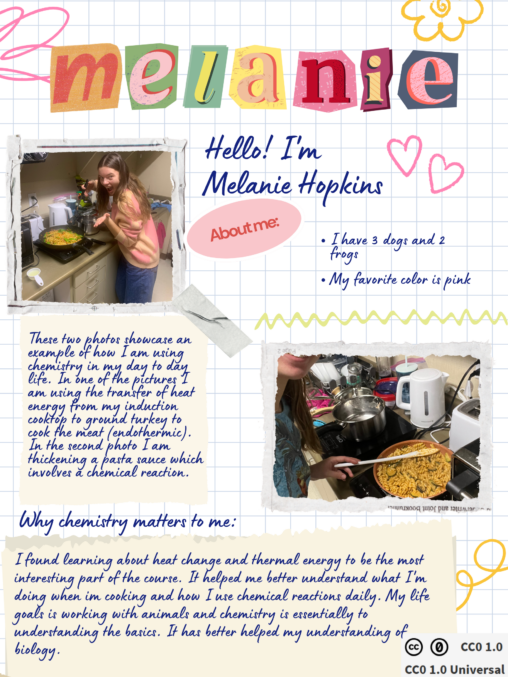 melanie
Hello! I'm
Melanie Hopkins
About me:
• I have 3 dogs and 2
frogs
• My favorite color is pink
These two photos showcase an
example of how I am using
chemistry in my day to day
life. In one of the pictures I
am using the transfer of heat
energy from my induction
cooktop to ground turkey to
cook the meat (endothermic).
In the second photo I am
thickening a pasta sauce which
involves a chemical reaction.
Why chemistry matters to me:
I found learning about heat change and thermal energy to be the most
interesting part of the course. It helped me better understand what I'm
doing when im cooking and how I use chemical reactions daily. My life
goals is working with animals and chemistry is essentially to
understanding the basics. It has better helped my understanding of
biology.
CC0 1.0
CC0 1.0 Universal